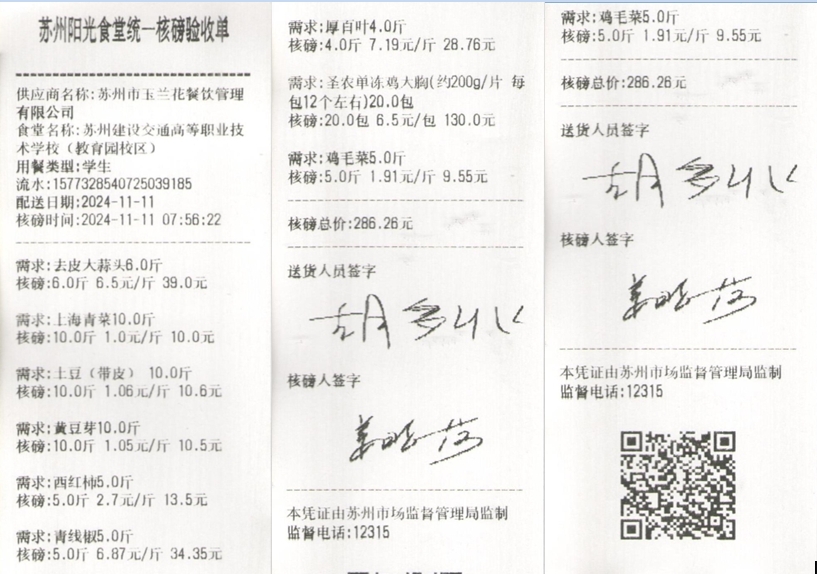 苏州阳光食堂统一核磅验收单
供应商名称:苏州市玉兰花餐饮管理
有限公司
食堂名称:苏州建设交通高等职业技
术学校（教育园校区）
用餐类型:学生
流水:1577328540725039185
配送日期:2024-11-11
核磅时间:2024-11-11 07:56:22
需求:去皮大蒜头6.0斤
核磅:6.0斤 6.5元/斤 39.0元
需求:上海青菜10.0斤
核磅:10.0斤 1.0元/斤 10.0元
需求:土豆（带皮） 10.0斤
核磅:10.0斤 1.06元/斤 10.6元
需求:黄豆芽10.0斤
核磅:10.0斤 1.05元/斤 10.5元
需求:西红柿5.0斤
核磅:5.0斤 2.7元/斤 13.5元
需求:青线椒5.0斤
核磅:5.0斤 6.87元/斤 34.35元
需求:厚百叶4.0斤
核磅:4.0斤 7.19元/斤 28.76元
需求:圣农单冻鸡大胸(约200g/片 每
包12个左右)20.0包
核磅:20.0包 6.5元/包 130.0元
需求:鸡毛菜5.0斤
核磅:5.0斤 1.91元/斤 9.55元
核磅总价:286.26元
送货人员签字
核磅人签字
本凭证由苏州市场监督管理局监制
监督电话:12315
需求:鸡毛菜5.0斤
核磅:5.0斤 1.91元/斤 9.55元
核磅总价:286.26元
送货人员签字
核磅人签字
本凭证由苏州市场监督管理局监制
监督电话:12315